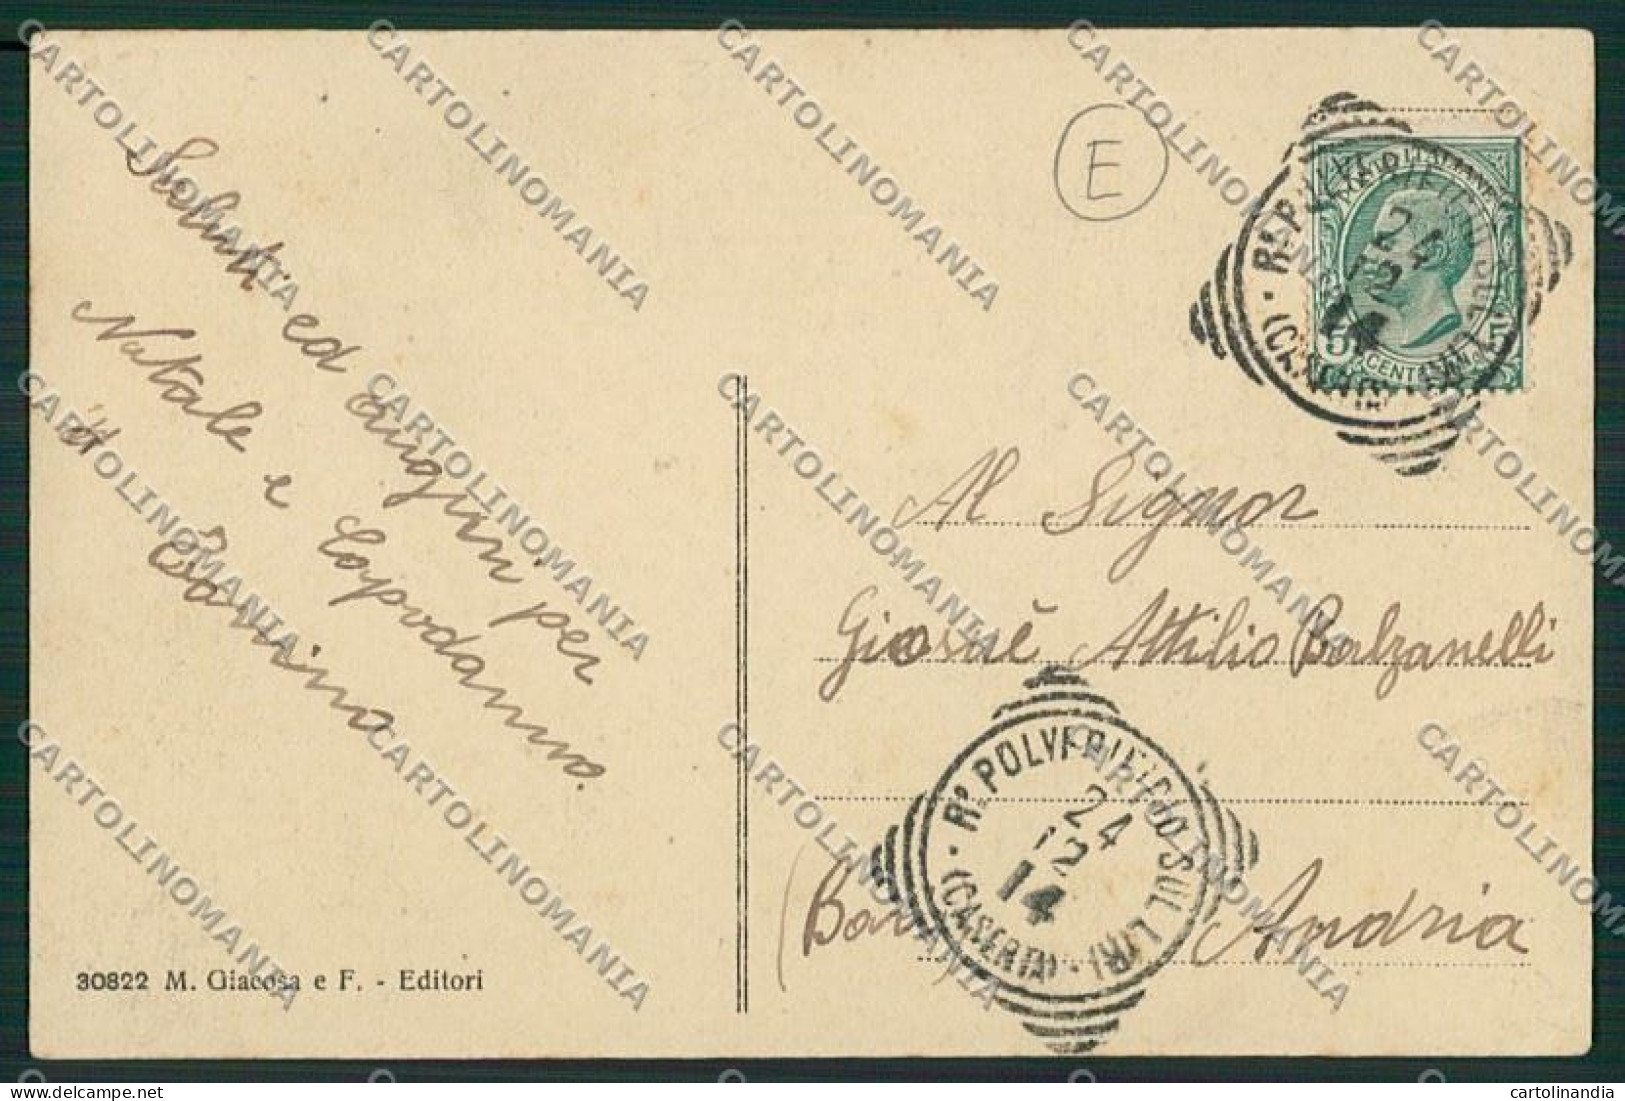 Saluti ed Auguri per
Natale e Capodanno.
30822 M. Giacosa e F. - Editori
E
POSTE ITALIANE
5 CENTESIMI 5
Rº POLVERIFICIO SUL LIRI (CASERTA)
24
12
14
Al Signor
Giosuè Attilio Balzanelli
Andria
Rº POLVERIFICIO SUL LIRI (CASERTA)
24
12
14
CARTOLINOMANIA
cartolinandia